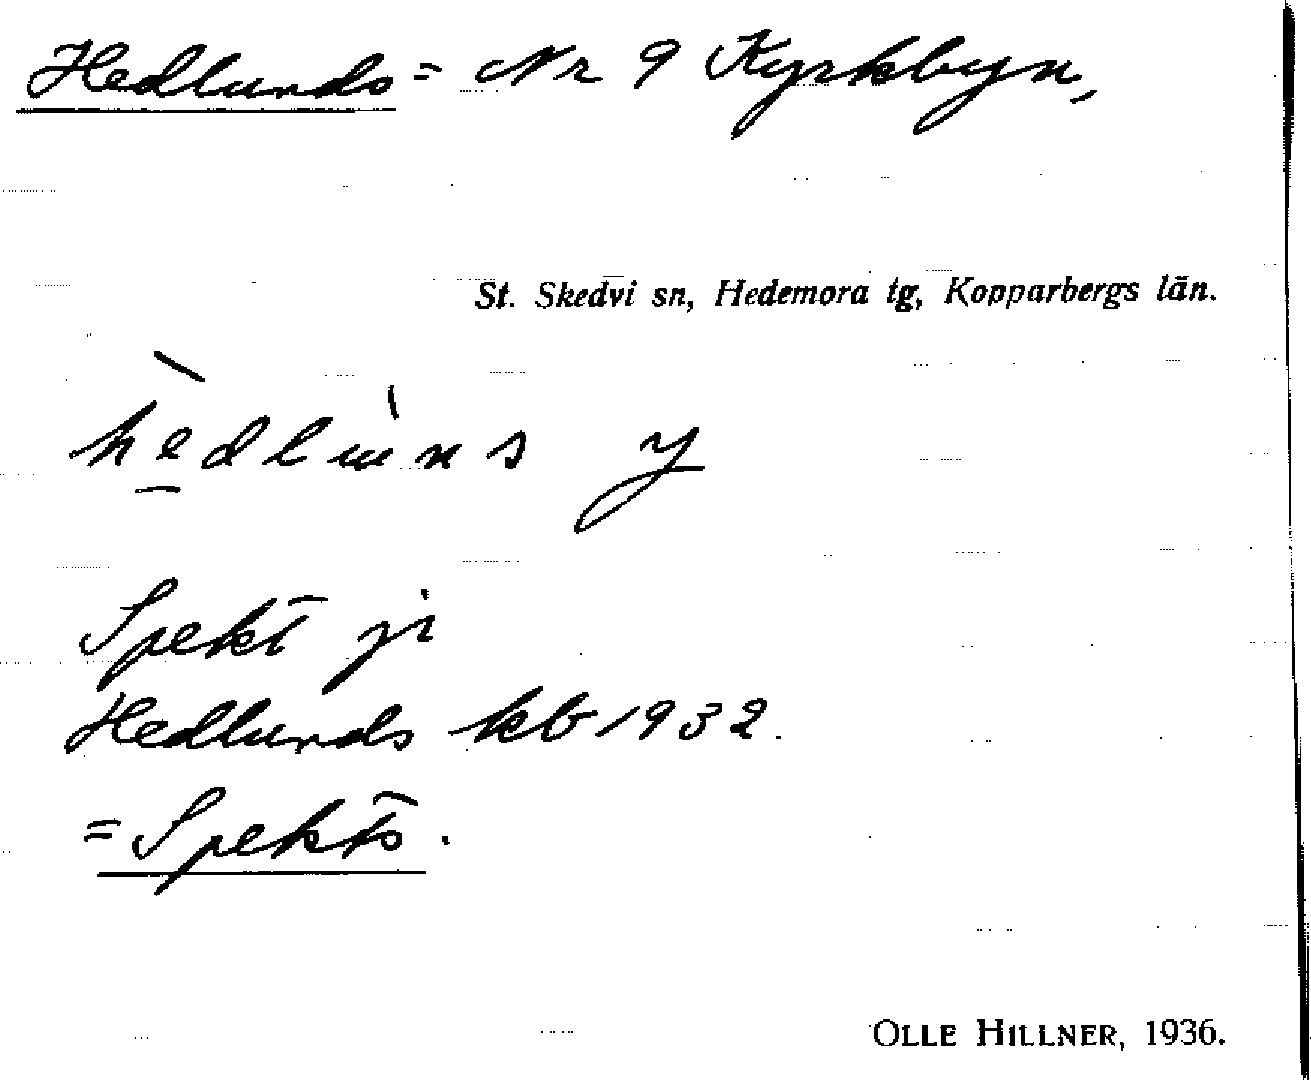 Hedlunds = Nr 9 Kyrkbyn,
St. Skedvi sn, Hedemora tg, Kopparbergs län.
hedluns y
Spekt ji
Hedlunds kb 1932.
= Spekts.
OLLE HILLNER, 1936.